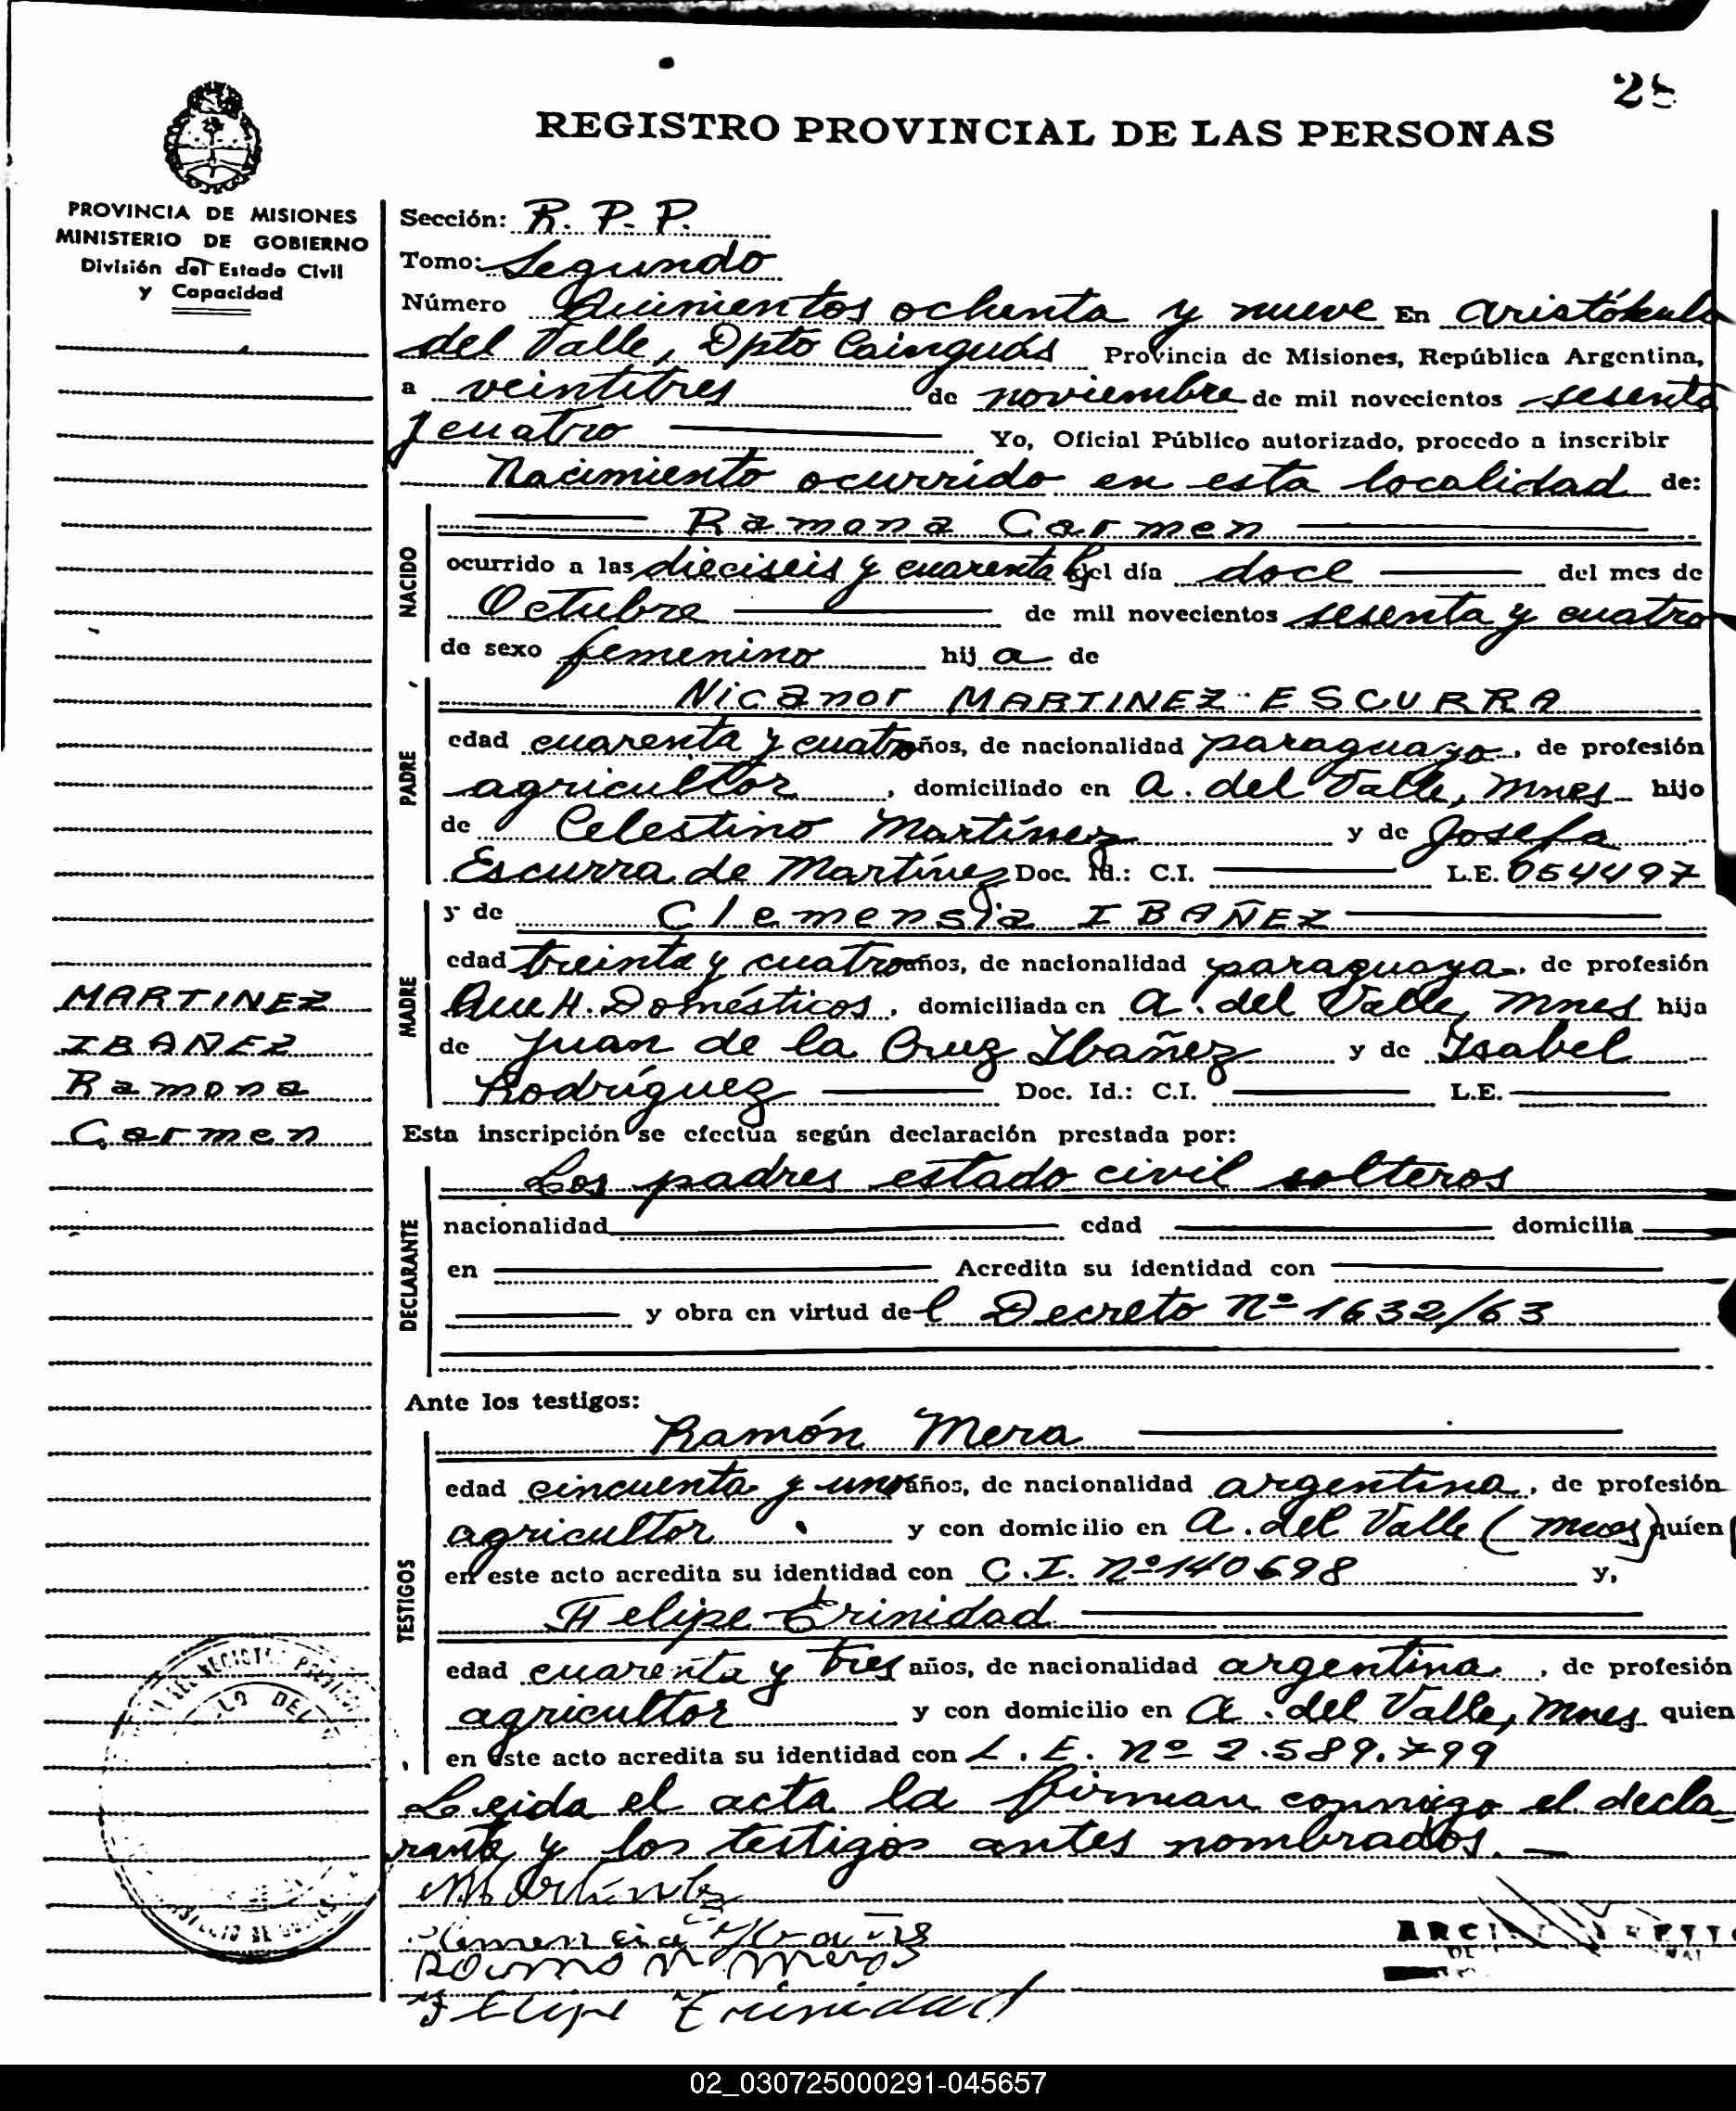 REGISTRO PROVINCIAL DE LAS PERSONAS
PROVINCIA DE MISIONES
MINISTERIO DE GOBIERNO
División del Estado Civil
y Capacidad
MARTINEZ
IBAÑEZ
Ramona
Carmen
Sección: R. P. P.
Tomo: Segundo
Número Quinientos ochenta y nueve En Aristóbulo
del Valle, Dpto Cainguás Provincia de Misiones, República Argentina,
a veintitres de noviembre de mil novecientos sesenta
y cuatro Yo, Oficial Público autorizado, procedo a inscribir
Nacimiento ocurrido en esta localidad de:
NACIDO
Ramona Carmen
ocurrido a las dieciseis y cuarenta h del día doce del mes de
Octubre de mil novecientos sesenta y cuatro
de sexo femenino hij a de
PADRE
Nicanor MARTINEZ ESCURRA
edad cuarenta y cuatro años, de nacionalidad paraguayo, de profesión
agricultor, domiciliado en A. del Valle, Mnes hijo
de Celestino Martínez y de Josefa
Escurra de Martínez Doc. Id.: C.I. L.E. 054497
MADRE
y de Clemensia IBAÑEZ
edad treinta y cuatro años, de nacionalidad paraguaya, de profesión
Queh. Domésticos, domiciliada en A. del Valle, Mnes hija
de Juan de la Cruz Ibañez y de Isabel
Rodríguez Doc. Id.: C.I. L.E.
Esta inscripción se efectúa según declaración prestada por:
DECLARANTE
Los padres estado civil solteros
nacionalidad edad domicilia
en Acredita su identidad con
y obra en virtud de l Decreto Nº 1632/63
Ante los testigos:
TESTIGOS
Ramón Mera
edad cincuenta y uno años, de nacionalidad argentina, de profesión
agricultor y con domicilio en A. del Valle (Mnes) quíen
en este acto acredita su identidad con C.I. Nº 140698 y,
Felipe Trinidad
edad cuarenta y tres años, de nacionalidad argentina, de profesión
agricultor y con domicilio en A. del Valle, Mnes quien
en este acto acredita su identidad con L.E. Nº 2.589.799
Leida el acta la firman conmigo el decla-
rante y los testigos antes nombrados.—
Martínez
Felipe Trinidad
02_030725000291-045657